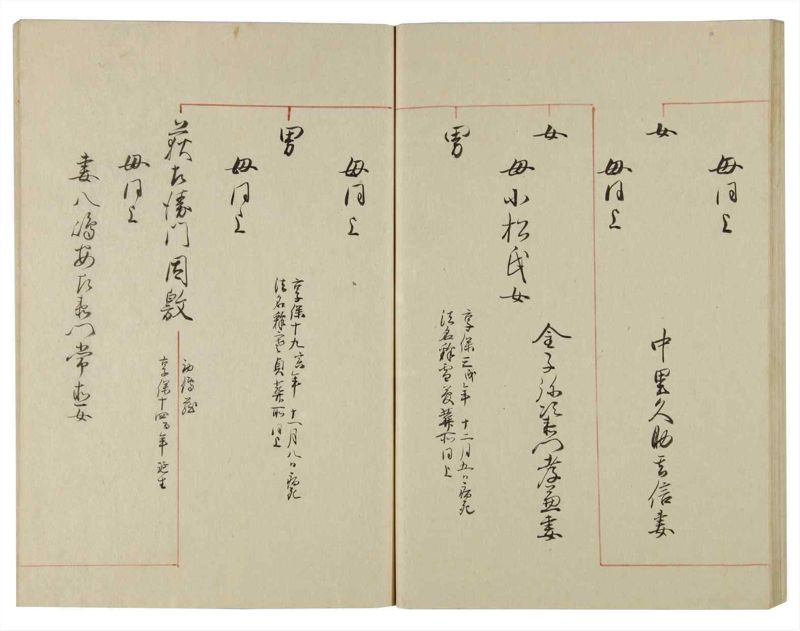 母同上
女
中里久助言信妻
母同上
女
母小松氏女
金子弥次右衛門孝兼妻
男
享保三戌年十二月五日病死
法名釈雪夢葬所同上
母同上
男
享保十九寅年十一月八日病死
法名釈貞葬所同上
母同上
荻右衛門周敷
初
享保十四酉年出生
母同上
妻八嶋安右衛門常女